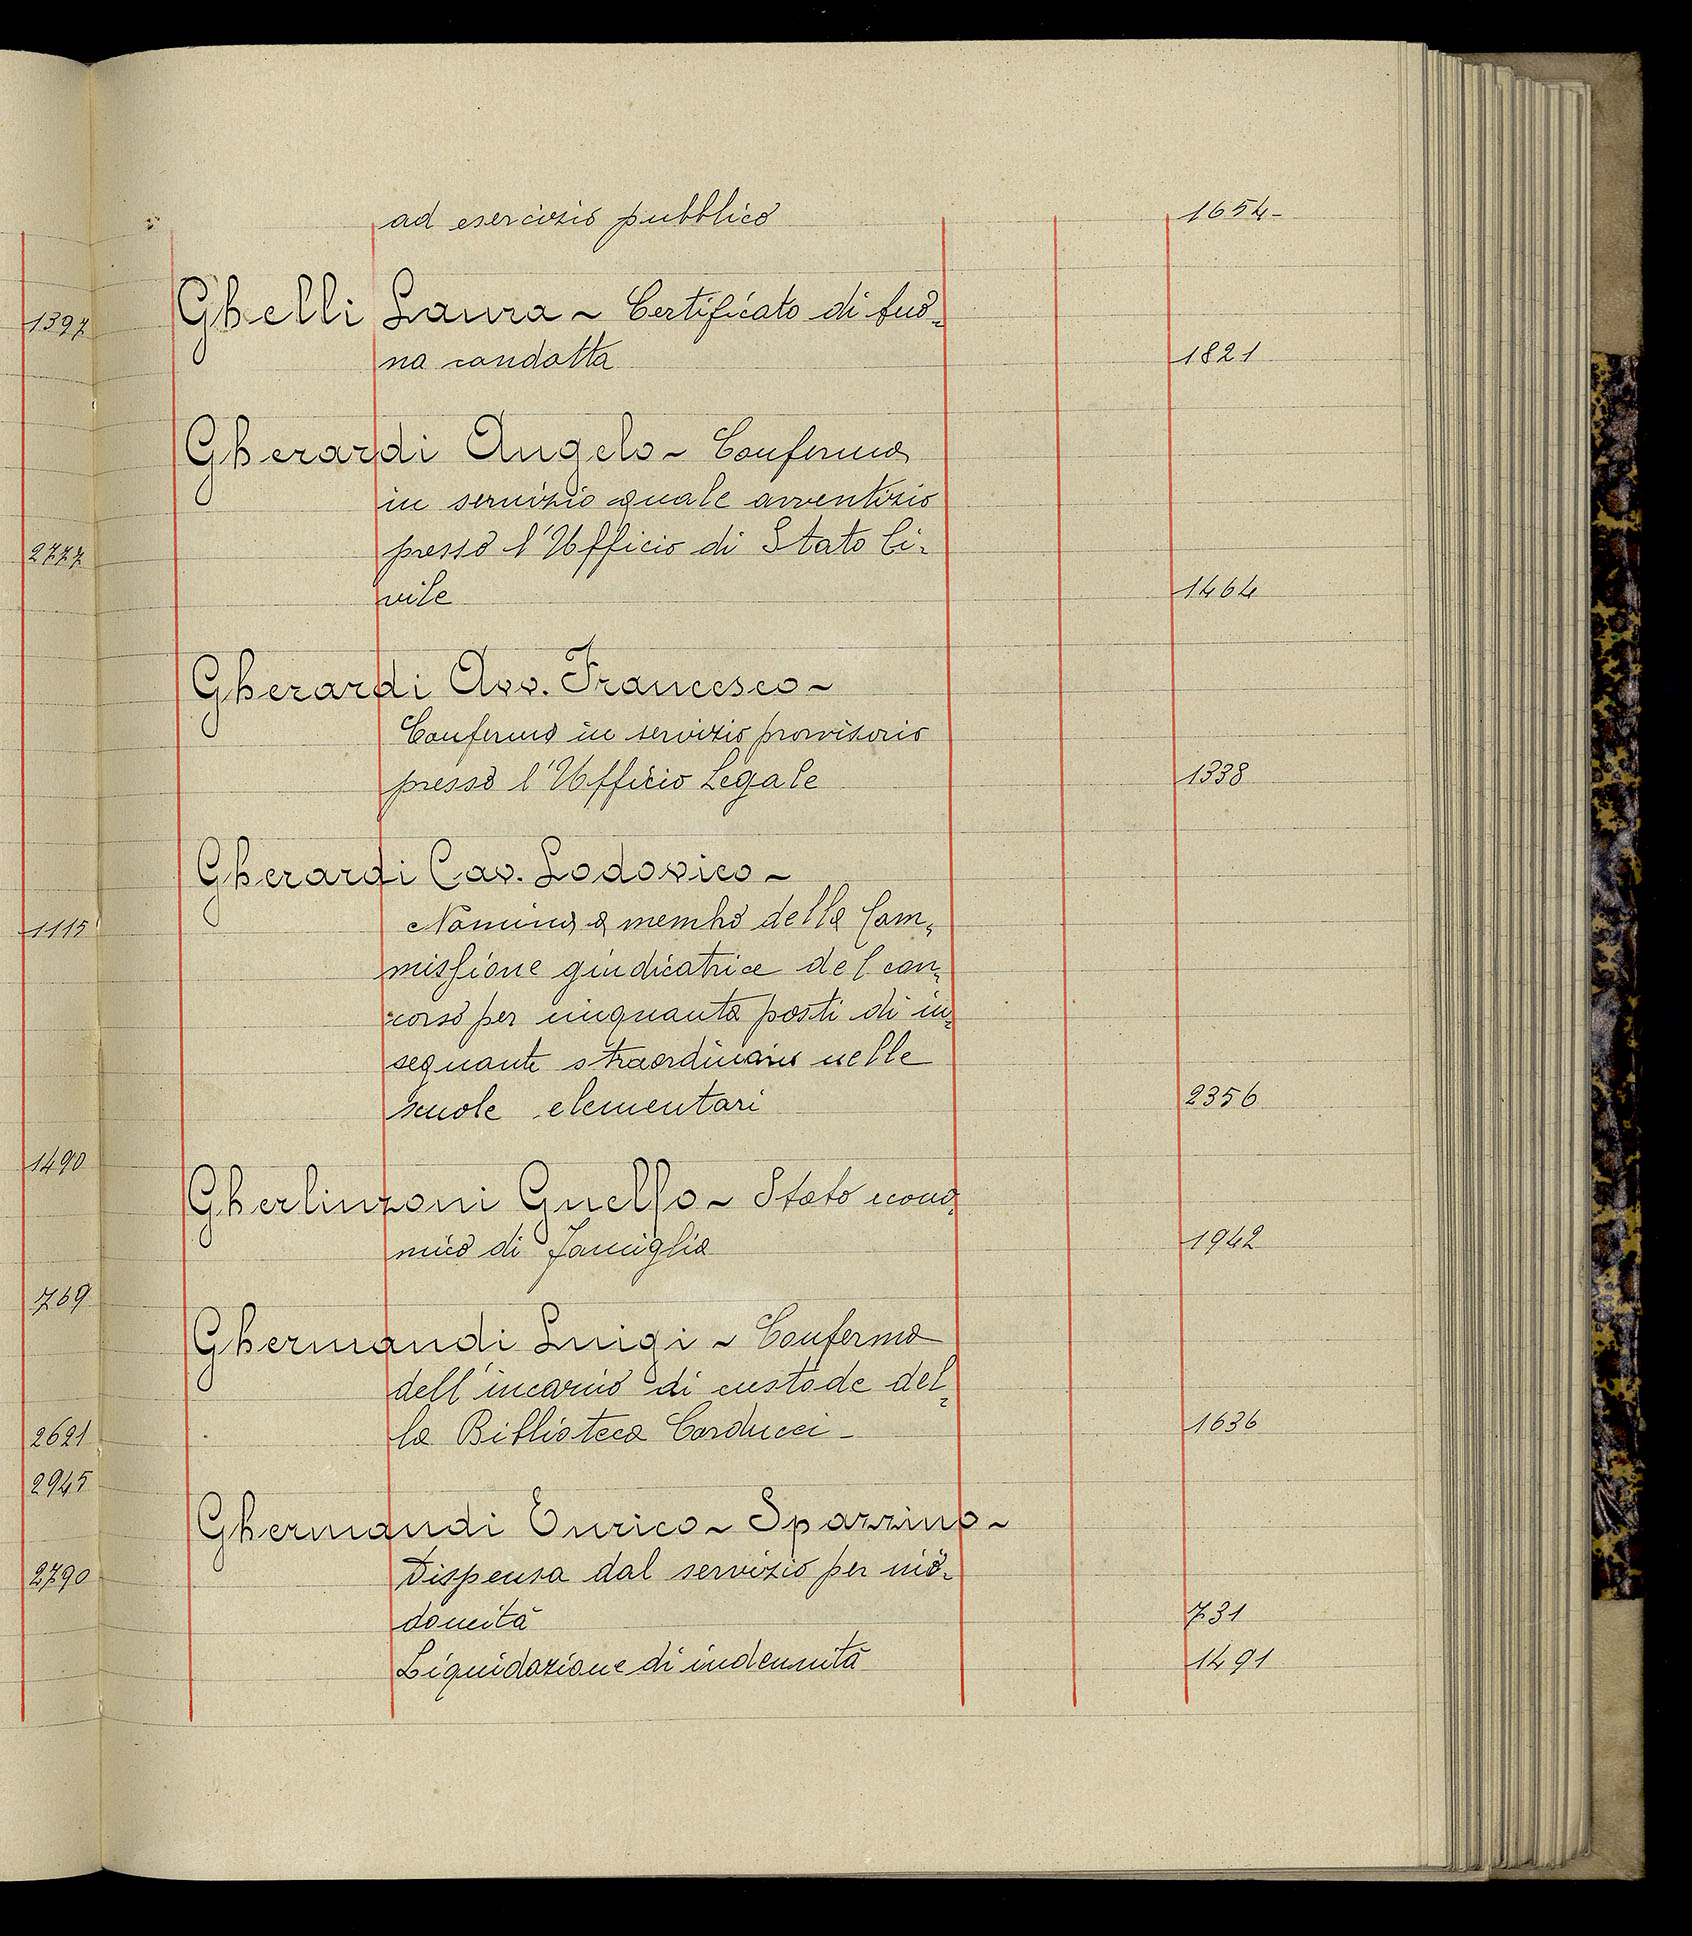 ad esercizio pubblico 1654-
Ghelli Laura ~ Certificato di buo-
na condotta 1821
Gherardi Angelo ~ Conferma
in servizio quale avventizio
presso l'Ufficio di Stato Ci-
vile 1464
Gherardi Avv. Francesco ~
Conferma in servizio provvisorio
presso l'Ufficio Legale 1338
Gherardi Cav. Lodovico ~
Nomina a membro della Com-
missione giudicatrice del con-
corso per cinquanta posti di in-
segnante straordinario nelle
scuole elementari 2356
Gherlinzoni Guelfo ~ Stato econo-
mico di famiglia 1942
Ghermandi Luigi ~ Conferma
dell'incarico di custode del-
la Biblioteca Carducci - 1636
Ghermandi Enrico ~ Spazzino ~
Dispensa dal servizio per ini-
doneità 731
Liquidazione di indennità 1491
1397
2777
1115
1490
769
2621
2945
2790